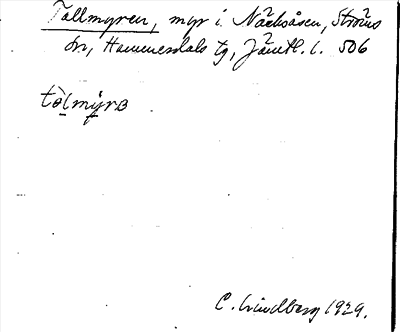 Tallmyren, myr i. Näckåsen, Ströms
sn, Hammerdals tg, Jämtl. l. 506
tòlmyrɐ
C. Lindberg 1929.